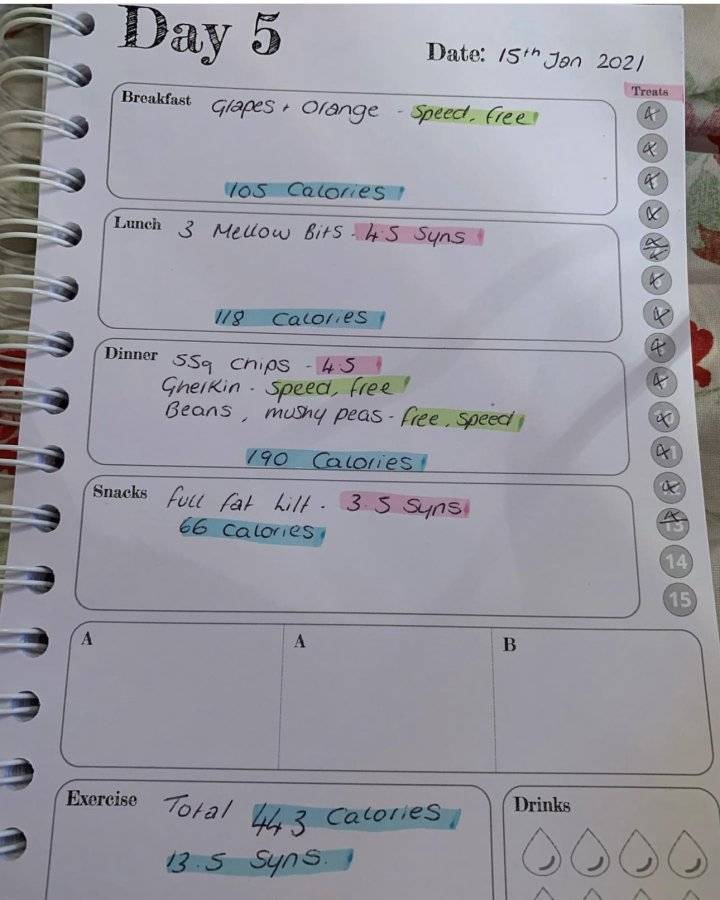 Day 5
Date: 15th Jan 2021
Treats
Breakfast Grapes + Orange - Speed, free
105 Calories
Lunch 3 Mellow Bits - 4.5 Syns
118 Calories
Dinner 55g chips - 4.5
Gherkin - Speed, free
Beans, mushy peas - free, speed
190 Calories
Snacks full fat - 3.5 Syns
66 calories
13
14
15
A A B
Exercise Total 443 Calories
13.5 Syns.
Drinks